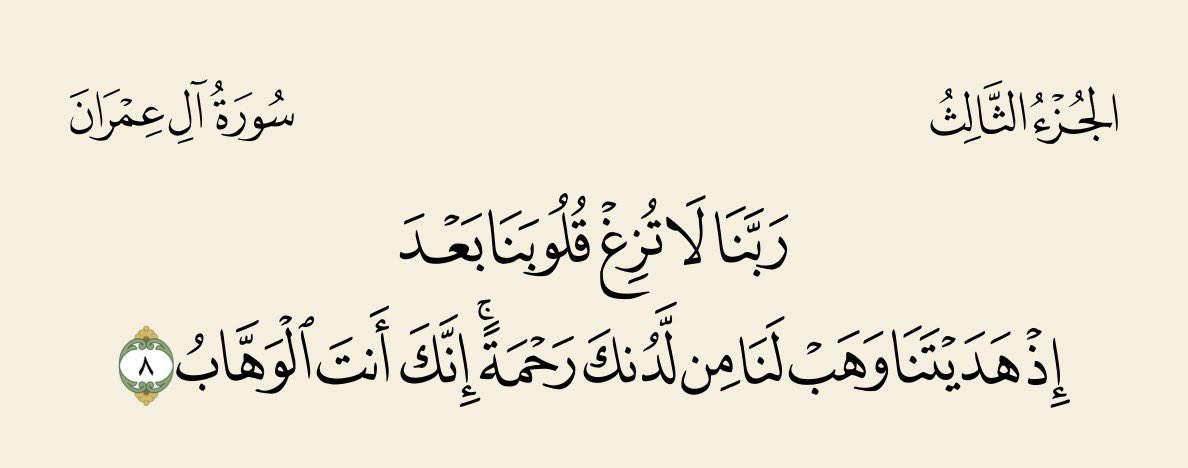 الجُزْءُ الثَّالِثُ
سُورَةُ آلِ عِمْرَانَ
رَبَّنَا لَا تُزِغْ قُلُوبَنَا بَعْدَ
إِذْ هَدَيْتَنَا وَهَبْ لَنَا مِن لَّدُنكَ رَحْمَةً ۚ إِنَّكَ أَنتَ ٱلْوَهَّابُ ٨